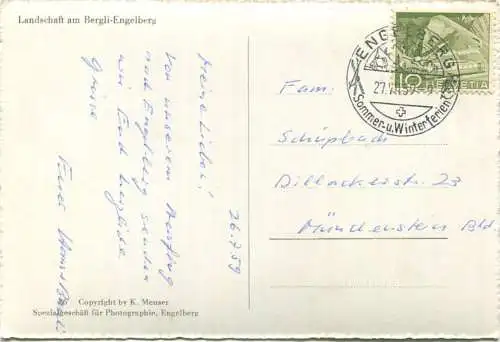 Landschaft am Bergli-Engelberg
26.7.59
Meine Lieben!
Von unserem Ausflug
nach Engelberg senden
wir Euch herzliche
Grüsse
Copyright by K. Meuser
Spezialgeschäft für Photographie, Engelberg
ENGELBERG
27.VII.59
Sommer-u.Winterferien
10
HELVETIA
Fam.
Schüpbach
Dillackerstr. 23
Münchenstein Bld.